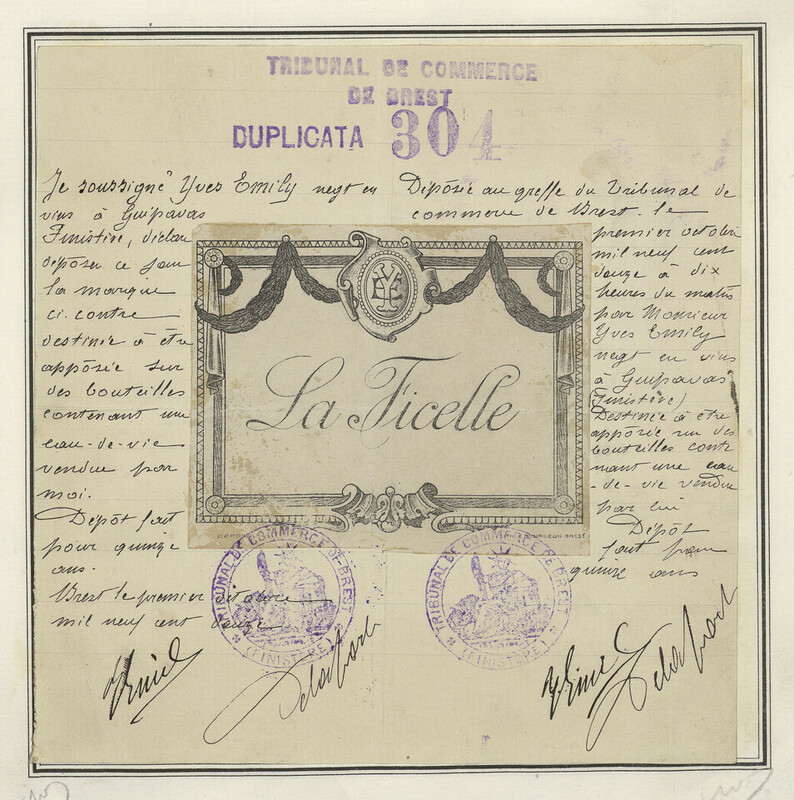 TRIBUNAL DE COMMERCE
DE BREST
DUPLICATA 304
Je soussigné Yves Emily negt en
vins à Guipavas
Finistère, déclare
déposer ce jour
la marque
ci-contre
destinée à être
apposée sur
des bouteilles
contenant une
eau-de-vie
vendue par
moi.
Dépôt fait
pour quinze
ans.
Brest le premier octobre
mil neuf cent douze
La Ficelle
Déposée au greffe du Tribunal de
commerce de Brest. le
premier octobre
mil neuf cent
douze à dix
heures du matin
par Monsieur
Yves Emily
negt en vins
à Guipavas
(Finistère)
Destinée à être
apposée sur des
bouteilles conte
nant une eau
-de-vie vendue
par lui
Dépôt
fait pour
quinze ans
TRIBUNAL DE COMMERCE DE BREST
(FINISTERE)
TRIBUNAL DE COMMERCE DE BREST
(FINISTERE)